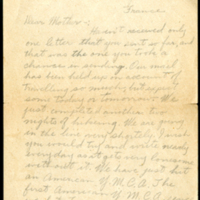 France
Dear Mother:
Haven't received only
one letter that you sent so far, and
that was the one you took a
chance in sending. Our mail
has been held up on account of
traveling so much, but expect
some today or tomorrow. We
just completed another two
nights of hiking. We are going
in the line very shortly. I wish
you would try and write nearly
everyday as it gets very lonesome
without it. We have just built
an American Y.M.C.A. The
first American Y.M.C.A.